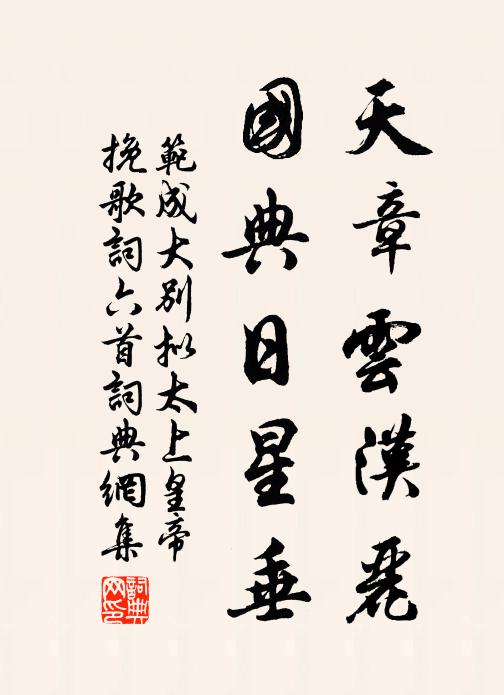 天章雲漢麗
國典日星垂
範成大別擬太上皇帝
挽歌詞六首詞典網集
詞典
网印